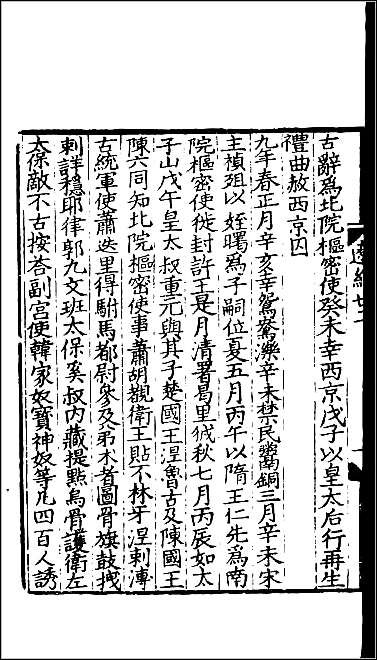 古辭爲北院樞密使癸未幸西京戊子以皇太后行再生
禮曲赦西京囚
九年春正月辛亥幸鴛鴦濼辛未禁民鬻銅三月辛未宋
主禎殂以姪曙爲子嗣位夏五月丙午以隋王仁先爲南
院樞密使徙封許王是月清暑曷里狘秋七月丙辰如太
子山戊午皇太叔重元與其子楚國王涅魯古及陳國王
陳六同知北院樞密使事蕭胡覩衛王貼不林牙涅剌溥
古統軍使蕭迭里得駙馬都尉參及弟术者圖骨旗鼓拽
剌詳穩耶律郭九文班太保奚叔内藏提點烏骨護衛左
太保敵不古按荅副宫使韓家奴寶神奴等凡四百人誘